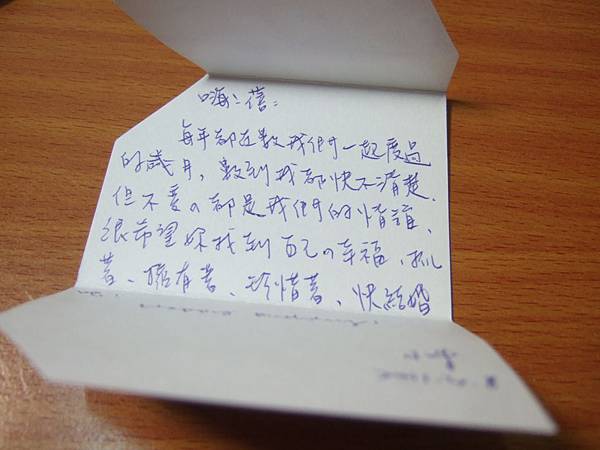 嗨、蓓：
每年都在數我們一起度過
的歲月，數到我都快不清楚.
但不變的都是我們的情誼.
很希望妳找到自己的幸福、抓
著、擁有著、珍惜著、快結婚